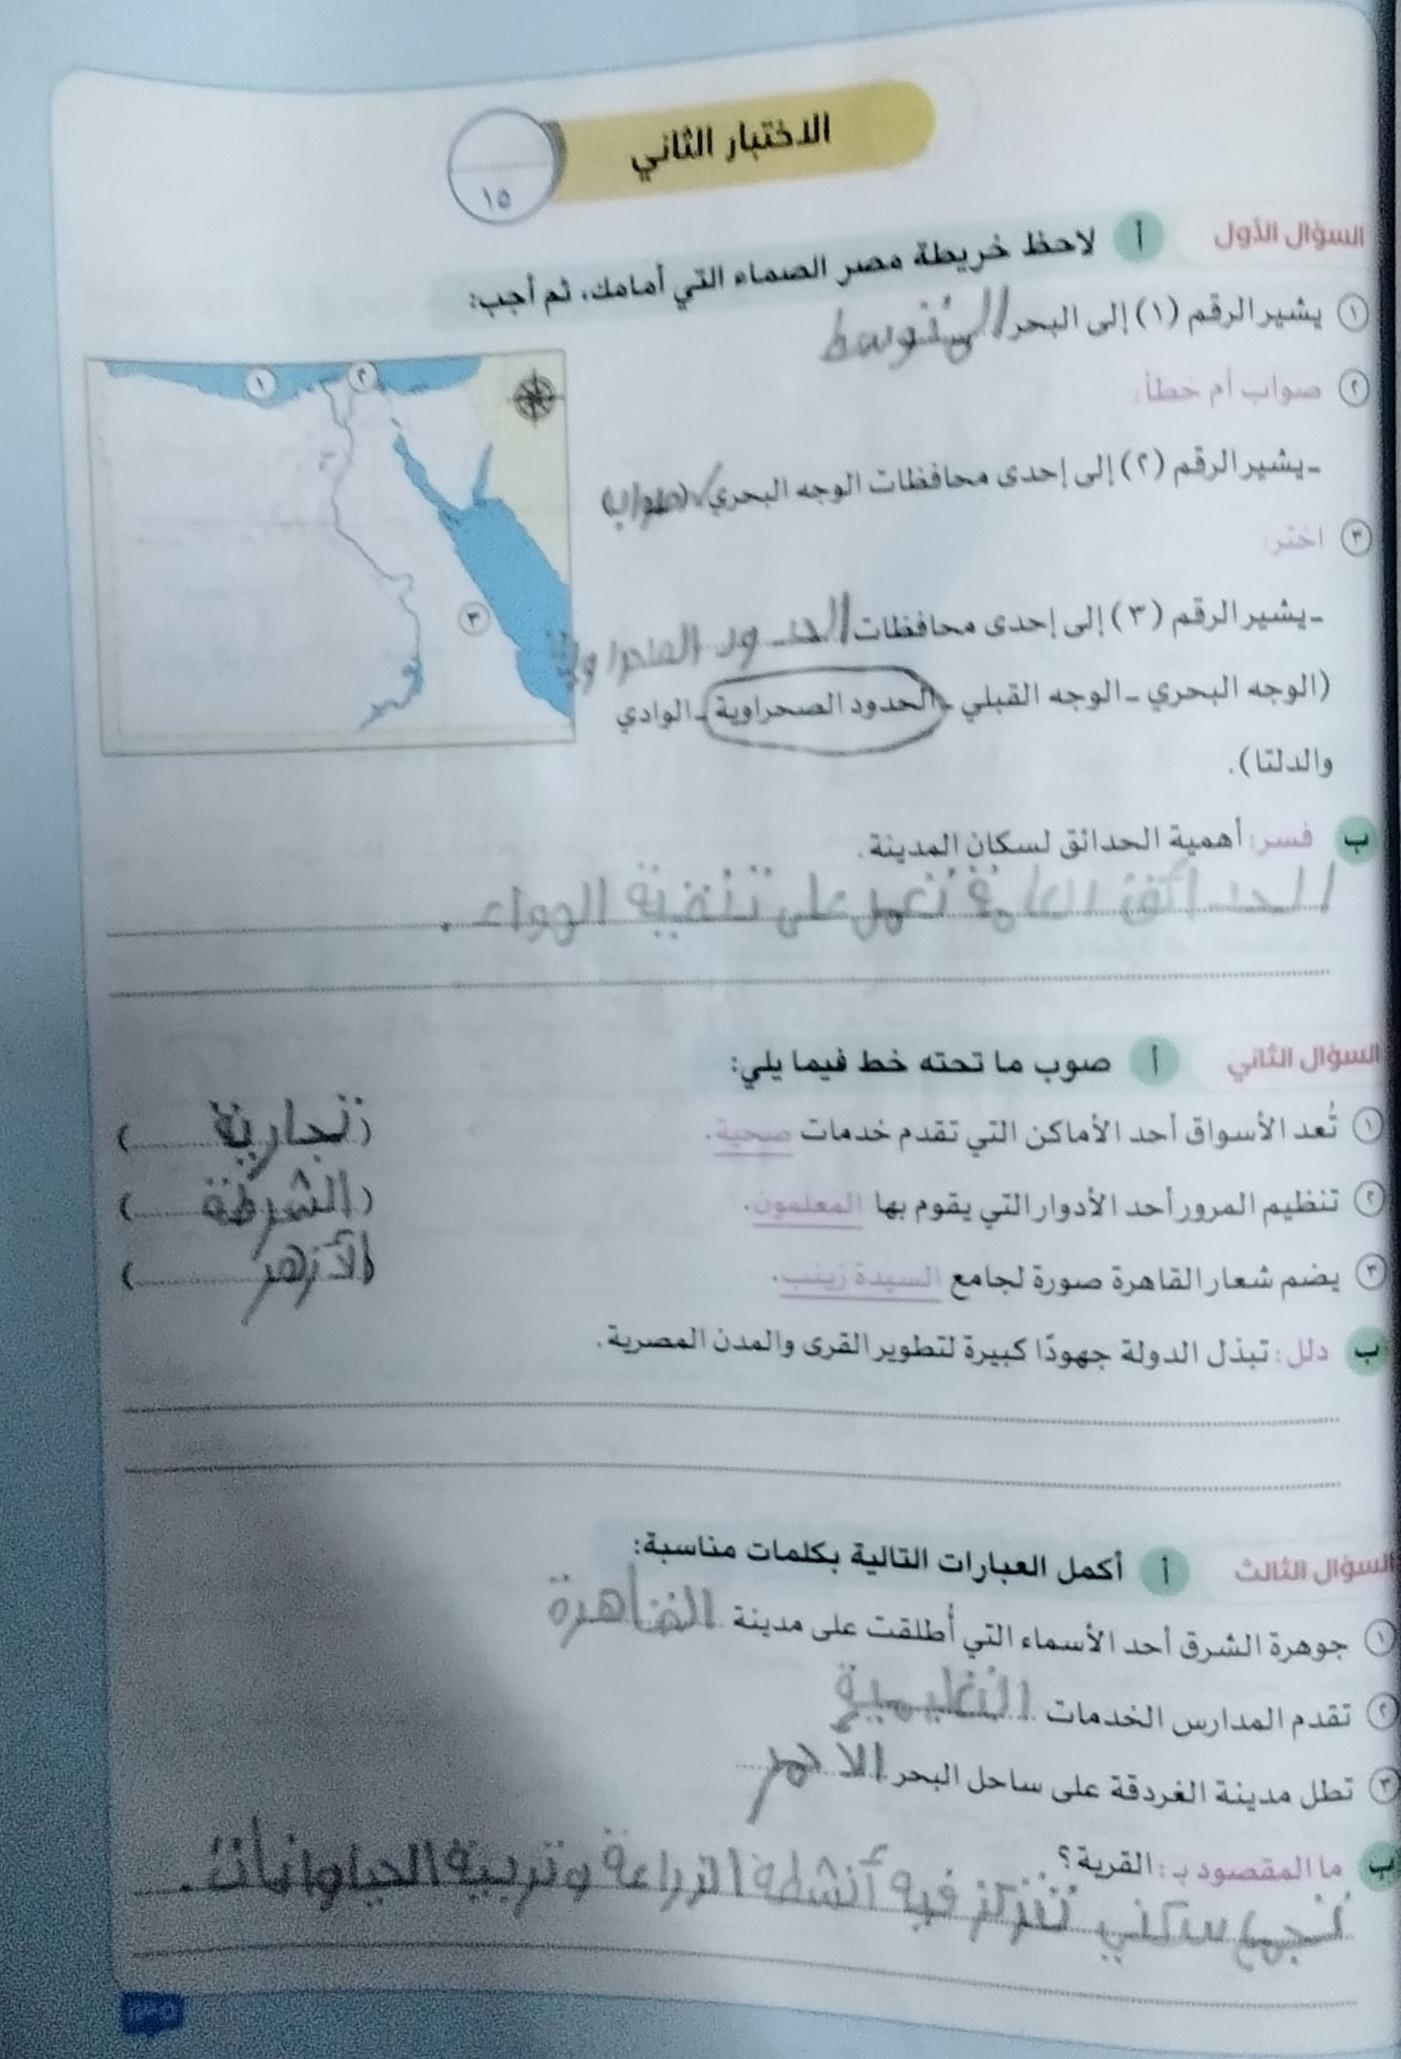 الاختبار الثاني
١٥
السؤال الأول أ لاحظ خريطة مصر الصماء التي أمامك، ثم أجب:
١ يشير الرقم (١) إلى البحر المتوسط
٢ صواب أم خطأ:
- يشير الرقم (٢) إلى إحدى محافظات الوجه البحري ✓ (صواب)
٣ اختر:
- يشير الرقم (٣) إلى إحدى محافظات الحدود الصحراوية
(الوجه البحري - الوجه القبلي - الحدود الصحراوية - الوادي
والدلتا).
١
٢
٣
ب فسر: أهمية الحدائق لسكان المدينة.
الحدائق العامة تعمل على تنقية الهواء.
السؤال الثاني أ صوب ما تحته خط فيما يلي:
١ تُعد الأسواق أحد الأماكن التي تقدم خدمات صحية. (تجارية)
٢ تنظيم المرور أحد الأدوار التي يقوم بها المعلمون. (الشرطة)
٣ يضم شعار القاهرة صورة لجامع السيدة زينب. (الأزهر)
ب دلل: تبذل الدولة جهودًا كبيرة لتطوير القرى والمدن المصرية.
السؤال الثالث أ أكمل العبارات التالية بكلمات مناسبة:
١ جوهرة الشرق أحد الأسماء التي أُطلقت على مدينة القاهرة
٢ تقدم المدارس الخدمات التعليمية
٣ تطل مدينة الغردقة على ساحل البحر الأحمر
ب ما المقصود بـ: القرية؟
تجمع سكني تتركز فيه أنشطة الزراعة وتربية الحيوانات.